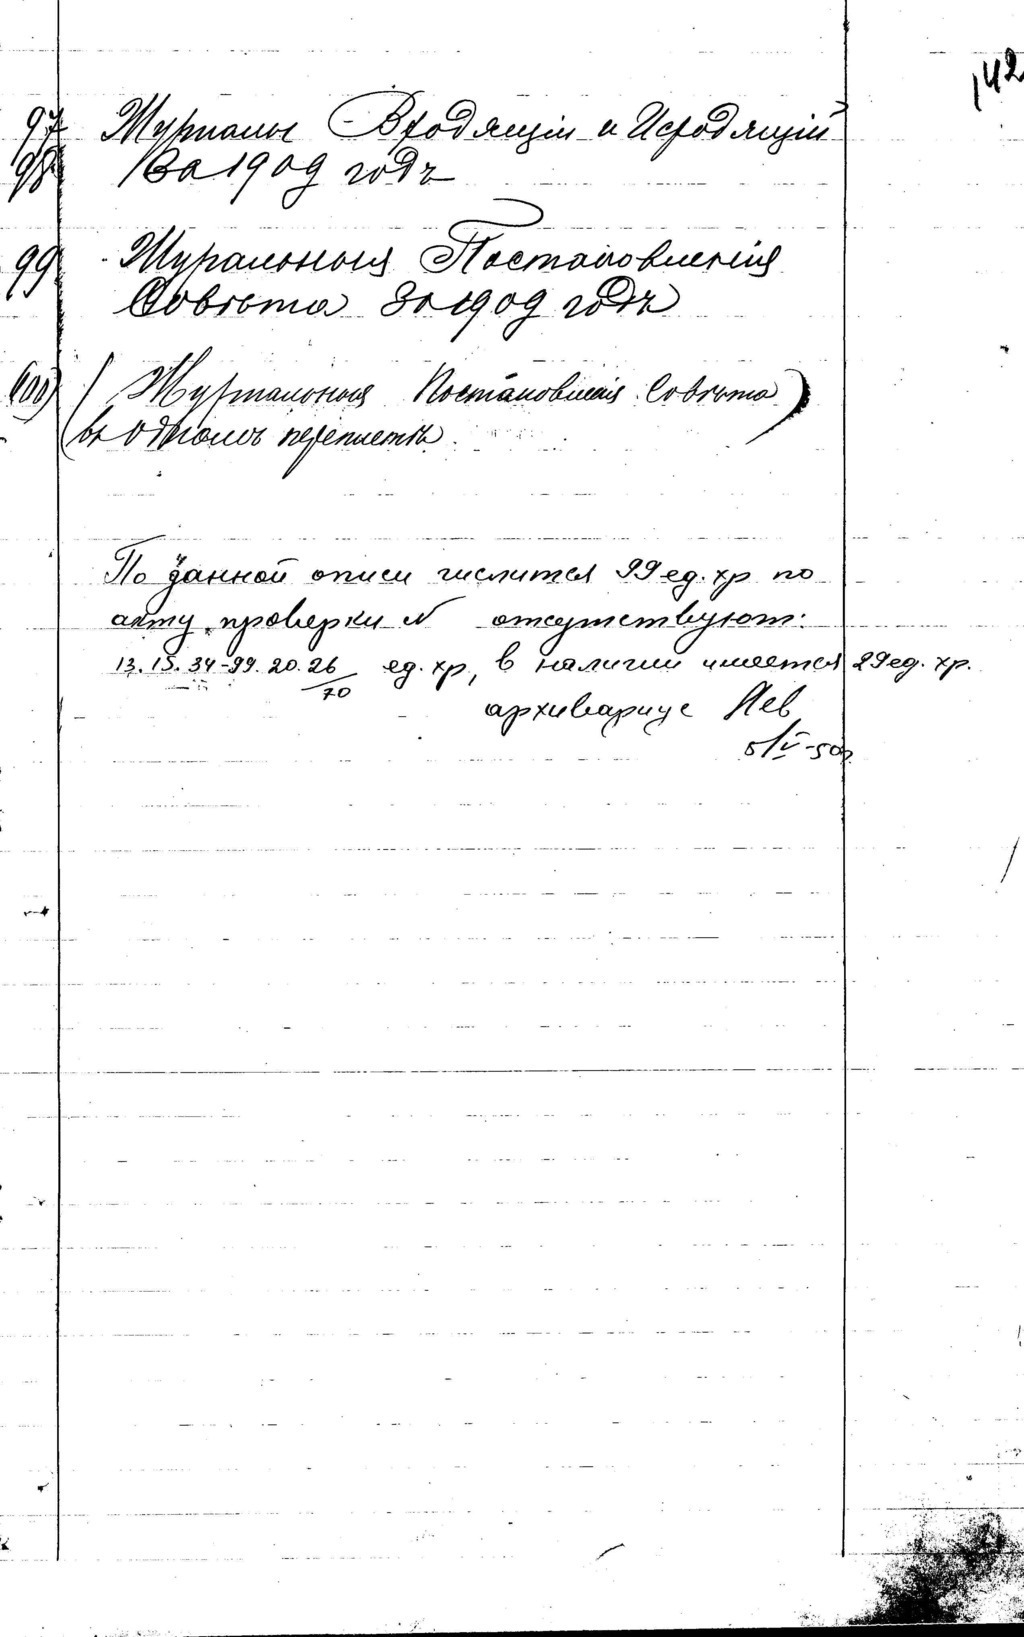 142
97 Журналы Входящій и Исходящій
98 За 1909 годъ
99 Журальныя Постановленія
Совѣта За 1909 годъ
100) (Журнальныя Постановленія Совѣта)
въ одномъ переплетѣ.
По данной описи числится 99 ед. хр по
акту проверки № отсутствуют:
13. 15. 34-99. 20. 26 ед. хр, в наличии имеется 29 ед. хр.
70
архивариус Лев
5/V-50г.